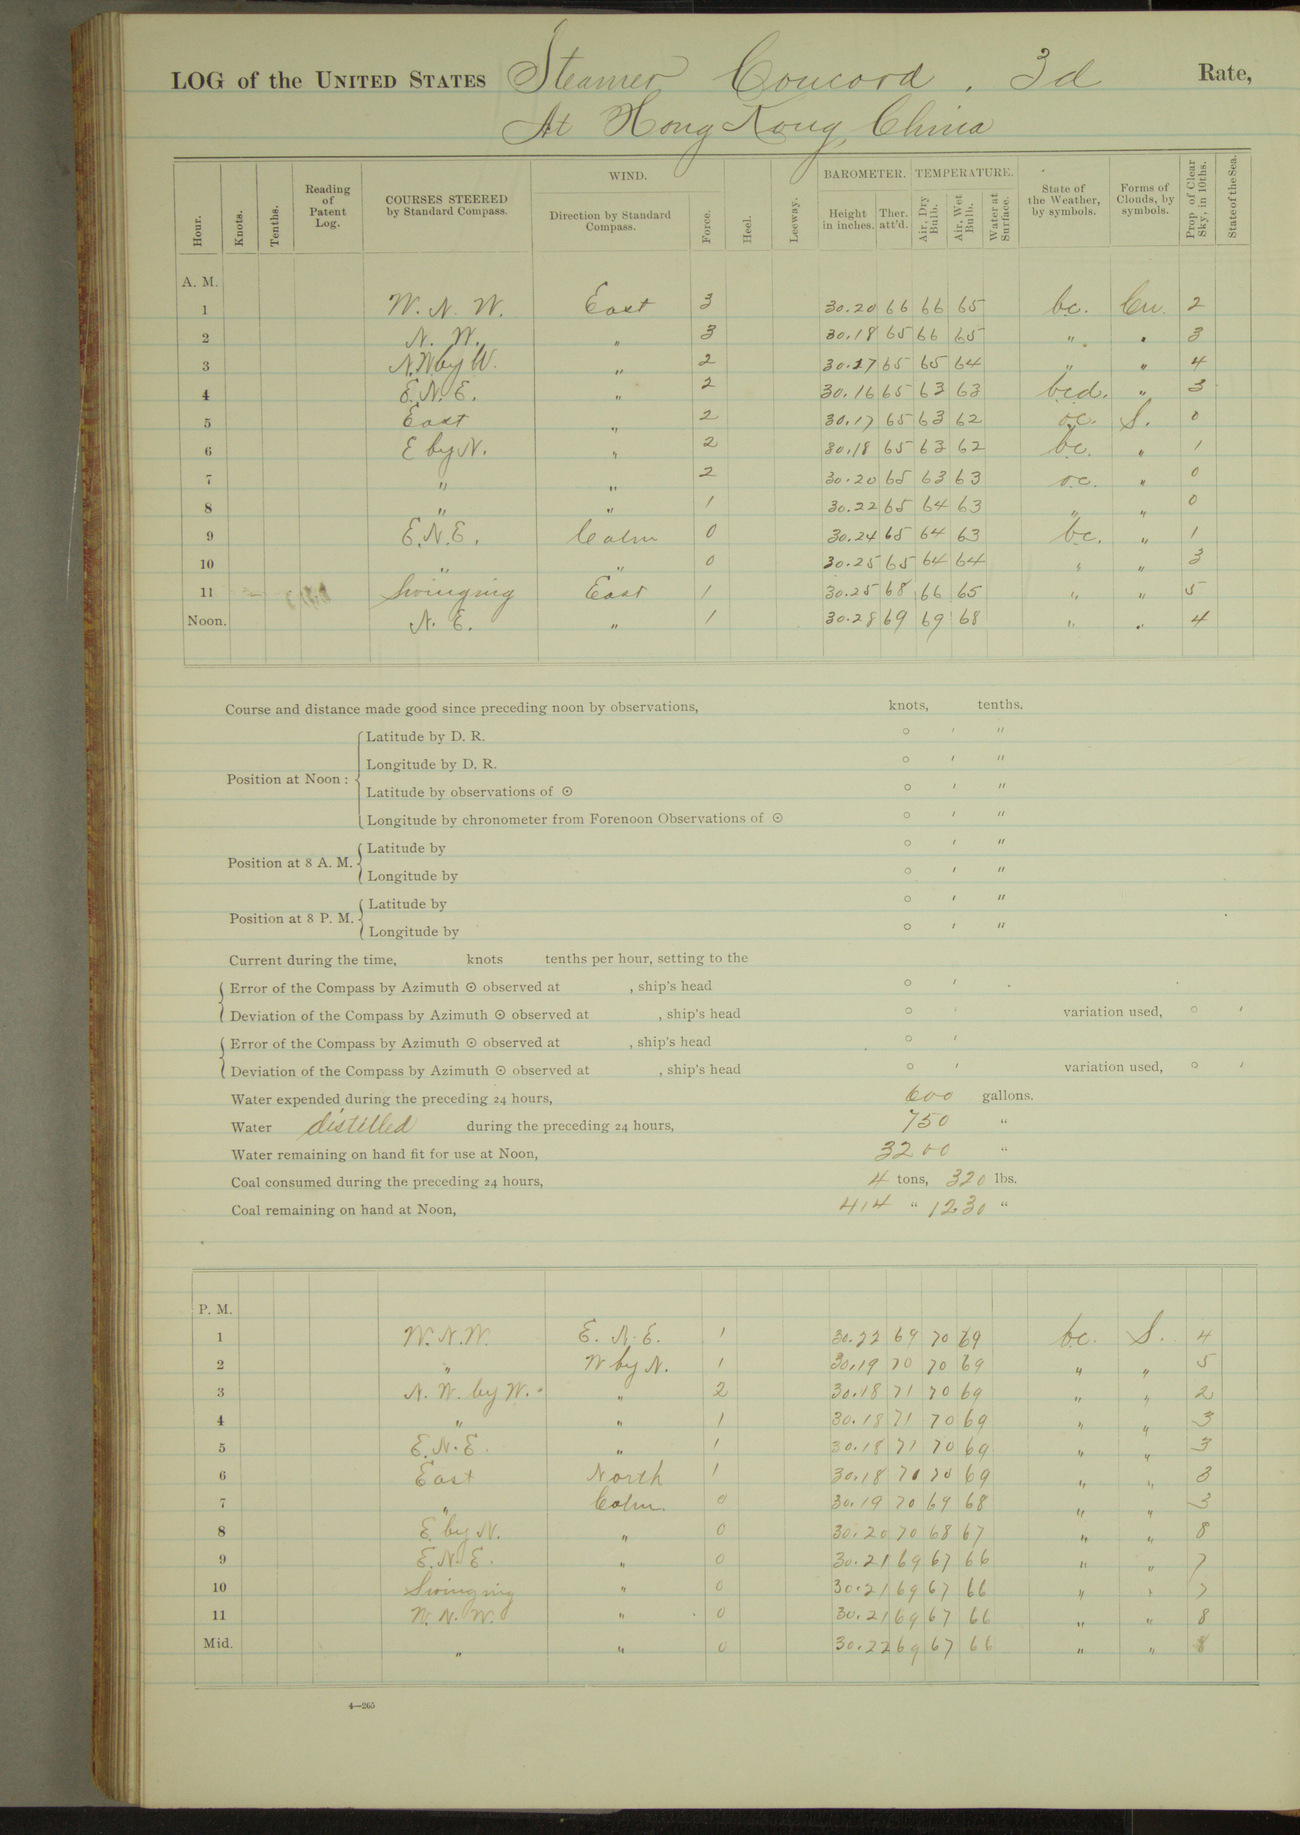 LOG of the UNITED STATES Steamer Concord, 3d Rate,
At Hong Kong, China
Hour. Knots. Tenths. Reading of Patent Log. COURSES STEERED by Standard Compass. WIND. Direction by Standard Compass. Force. Heel. Leeway. BAROMETER. Height in inches. Ther. att'd. TEMPERATURE. Air, Dry Bulb. Air, Wet Bulb. Water at Surface. State of the Weather, by symbols. Forms of Clouds, by symbols. Prop. of Clear Sky, in 10ths. State of the Sea.
A. M.
1 W. N. W. East 3 30.20 66 66 65 bc. Cu. 2
2 N. W. " 3 30.18 65 66 65 " " 3
3 N.W by W. " 2 30.17 65 65 64 " " 4
4 E.N.E. " 2 30.16 65 63 63 bcd. " 3
5 East " 2 30.17 65 63 62 o.c. S. 0
6 E by N. " 2 30.18 65 63 62 bc. " 1
7 " " 2 30.20 65 63 63 o.c. " 0
8 " " 1 30.22 65 64 63 " " 0
9 E.N.E. Calm 0 30.24 65 64 63 bc. " 1
10 " " 0 30.25 65 64 64 " " 3
11 Swinging East 1 30.25 68 66 65 " " 5
Noon. N. E. " 1 30.28 69 69 68 " " 4
Course and distance made good since preceding noon by observations, knots, tenths.
Position at Noon: Latitude by D. R. ° ' "
Longitude by D. R. ° ' "
Latitude by observations of ⊙ ° ' "
Longitude by chronometer from Forenoon Observations of ⊙ ° ' "
Position at 8 A. M. Latitude by ° ' "
Longitude by ° ' "
Position at 8 P. M. Latitude by ° ' "
Longitude by ° ' "
Current during the time, knots tenths per hour, setting to the
Error of the Compass by Azimuth ⊙ observed at , ship's head ° '
Deviation of the Compass by Azimuth ⊙ observed at , ship's head ° ' variation used, ° '
Error of the Compass by Azimuth ⊙ observed at , ship's head ° '
Deviation of the Compass by Azimuth ⊙ observed at , ship's head ° ' variation used, ° '
Water expended during the preceding 24 hours, 600 gallons.
Water distilled during the preceding 24 hours, 750 "
Water remaining on hand fit for use at Noon, 3200 "
Coal consumed during the preceding 24 hours, 4 tons, 320 lbs.
Coal remaining on hand at Noon, 414 " 1230 "
P. M.
1 W.N.W. E. N. E. 1 30.22 69 70 69 bc. S. 4
2 " W by N. 1 30.19 70 70 69 " " 5
3 N. W. by W. " 2 30.18 71 70 69 " " 2
4 " " 1 30.18 71 70 69 " " 3
5 E.N.E. " 1 30.18 71 70 69 " " 3
6 East North 1 30.18 70 70 69 " " 3
7 " Calm. 0 30.19 70 69 68 " " 3
8 E. by N. " 0 30.20 70 68 67 " " 8
9 E.N.E. " 0 30.21 69 67 66 " " 7
10 Swinging " 0 30.21 69 67 66 " " 7
11 W. N. W. " 0 30.21 69 67 66 " " 8
Mid. " " 0 30.22 69 67 66 " " 8
4—265